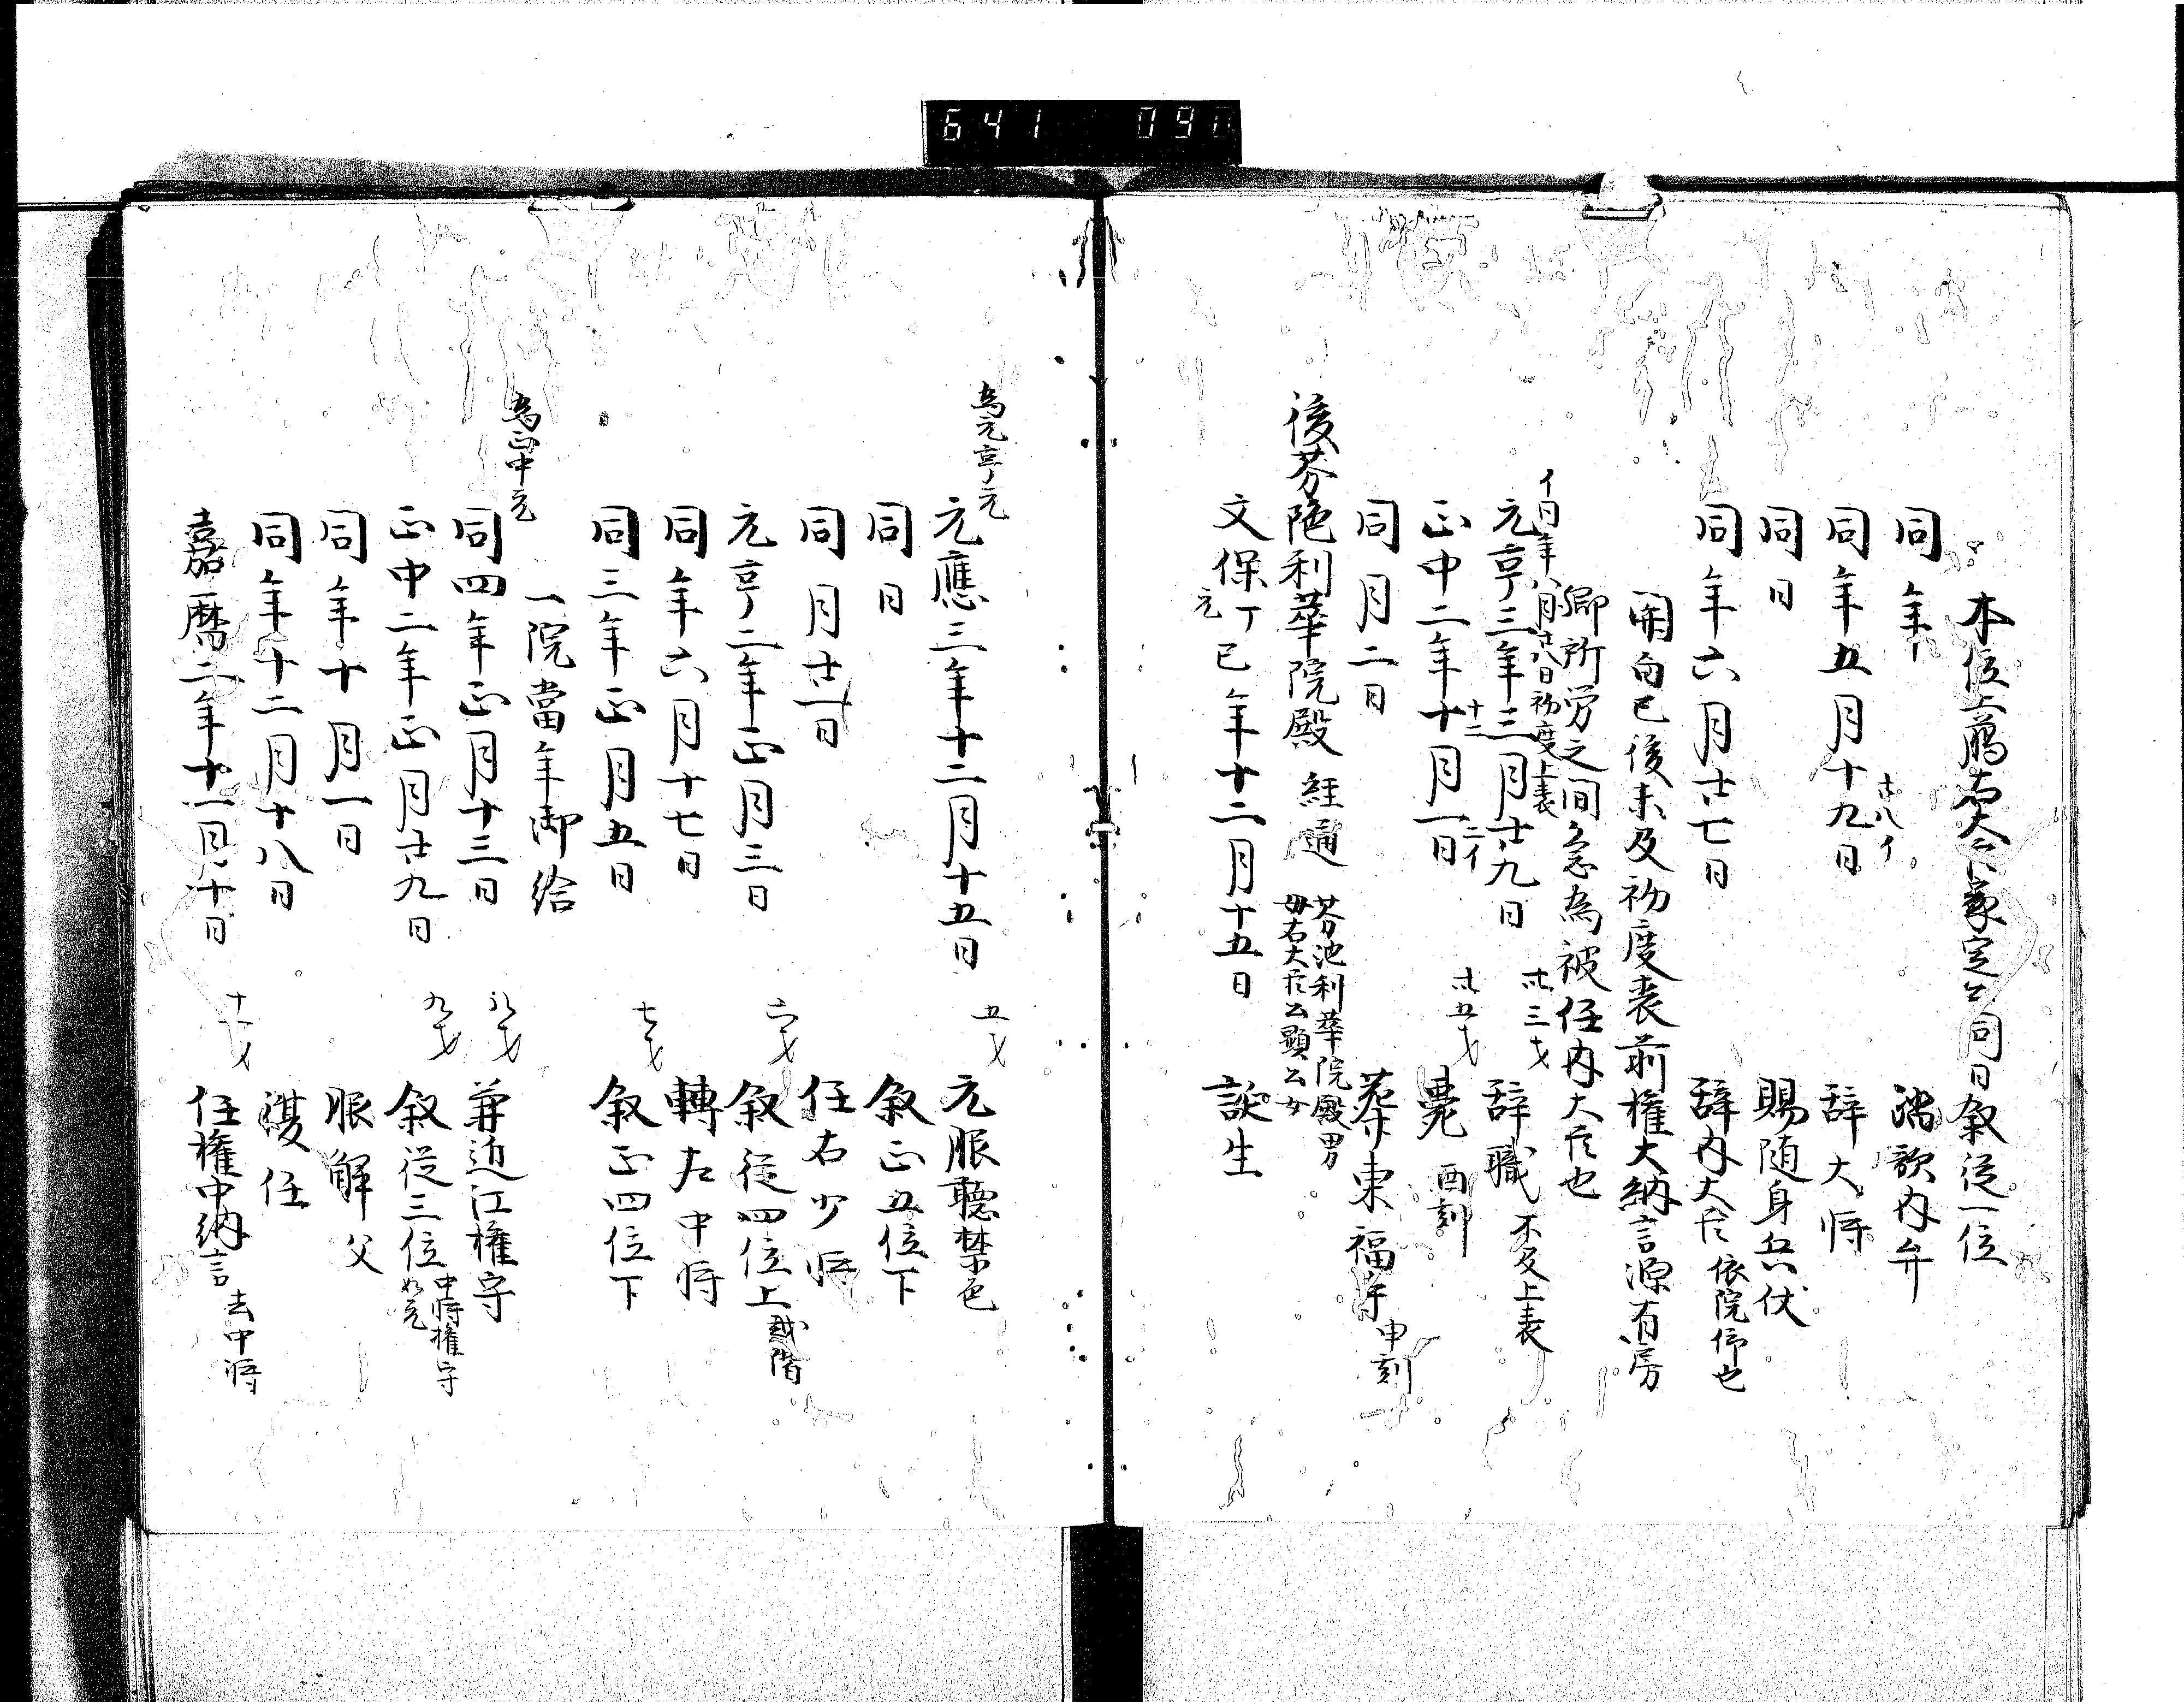 641 090
本位上﨟右大臣家定公同日叙従一位
同年 淸歟内弁
同年五月十九日 廿八イ 辞大将
同日 賜随身兵仗
同年六月廿七日 辞内大臣 依院仰也
関白已後未及初度表前権大納言源有房
卿所労之間忩為被任内大臣也
イ同年八月廿八日初度上表
元亨三年三月廿九日 卅三才 辞職 不及上表
正中二年十月一日 十二 二イ 卅五才 薨 酉刻
同月二日 葬東福寺 申刻
後芬陀利華院殿 経通 芬池利華院殿男
母右大臣公顕公女
文保丁巳年十二月十五日 元 誕生
為元亨元
元應三年十二月十五日 五才 元服聴禁色
同日 叙正五位下
同月廿一日 任右少将
元亨二年正月三日 六才 叙従四位上 越階
同年六月十七日 轉左中将
同三年正月五日 七才 叙正四位下
一院當年御給
為正中元
同四年正月十三日 八才 兼近江権守
正中二年正月廿九日 九才 叙従三位 中将権守
如元
同年十月一日 服解 父
同年十二月十八日 復任
嘉暦二年十一月十日 十一才 任権中納言 去中将